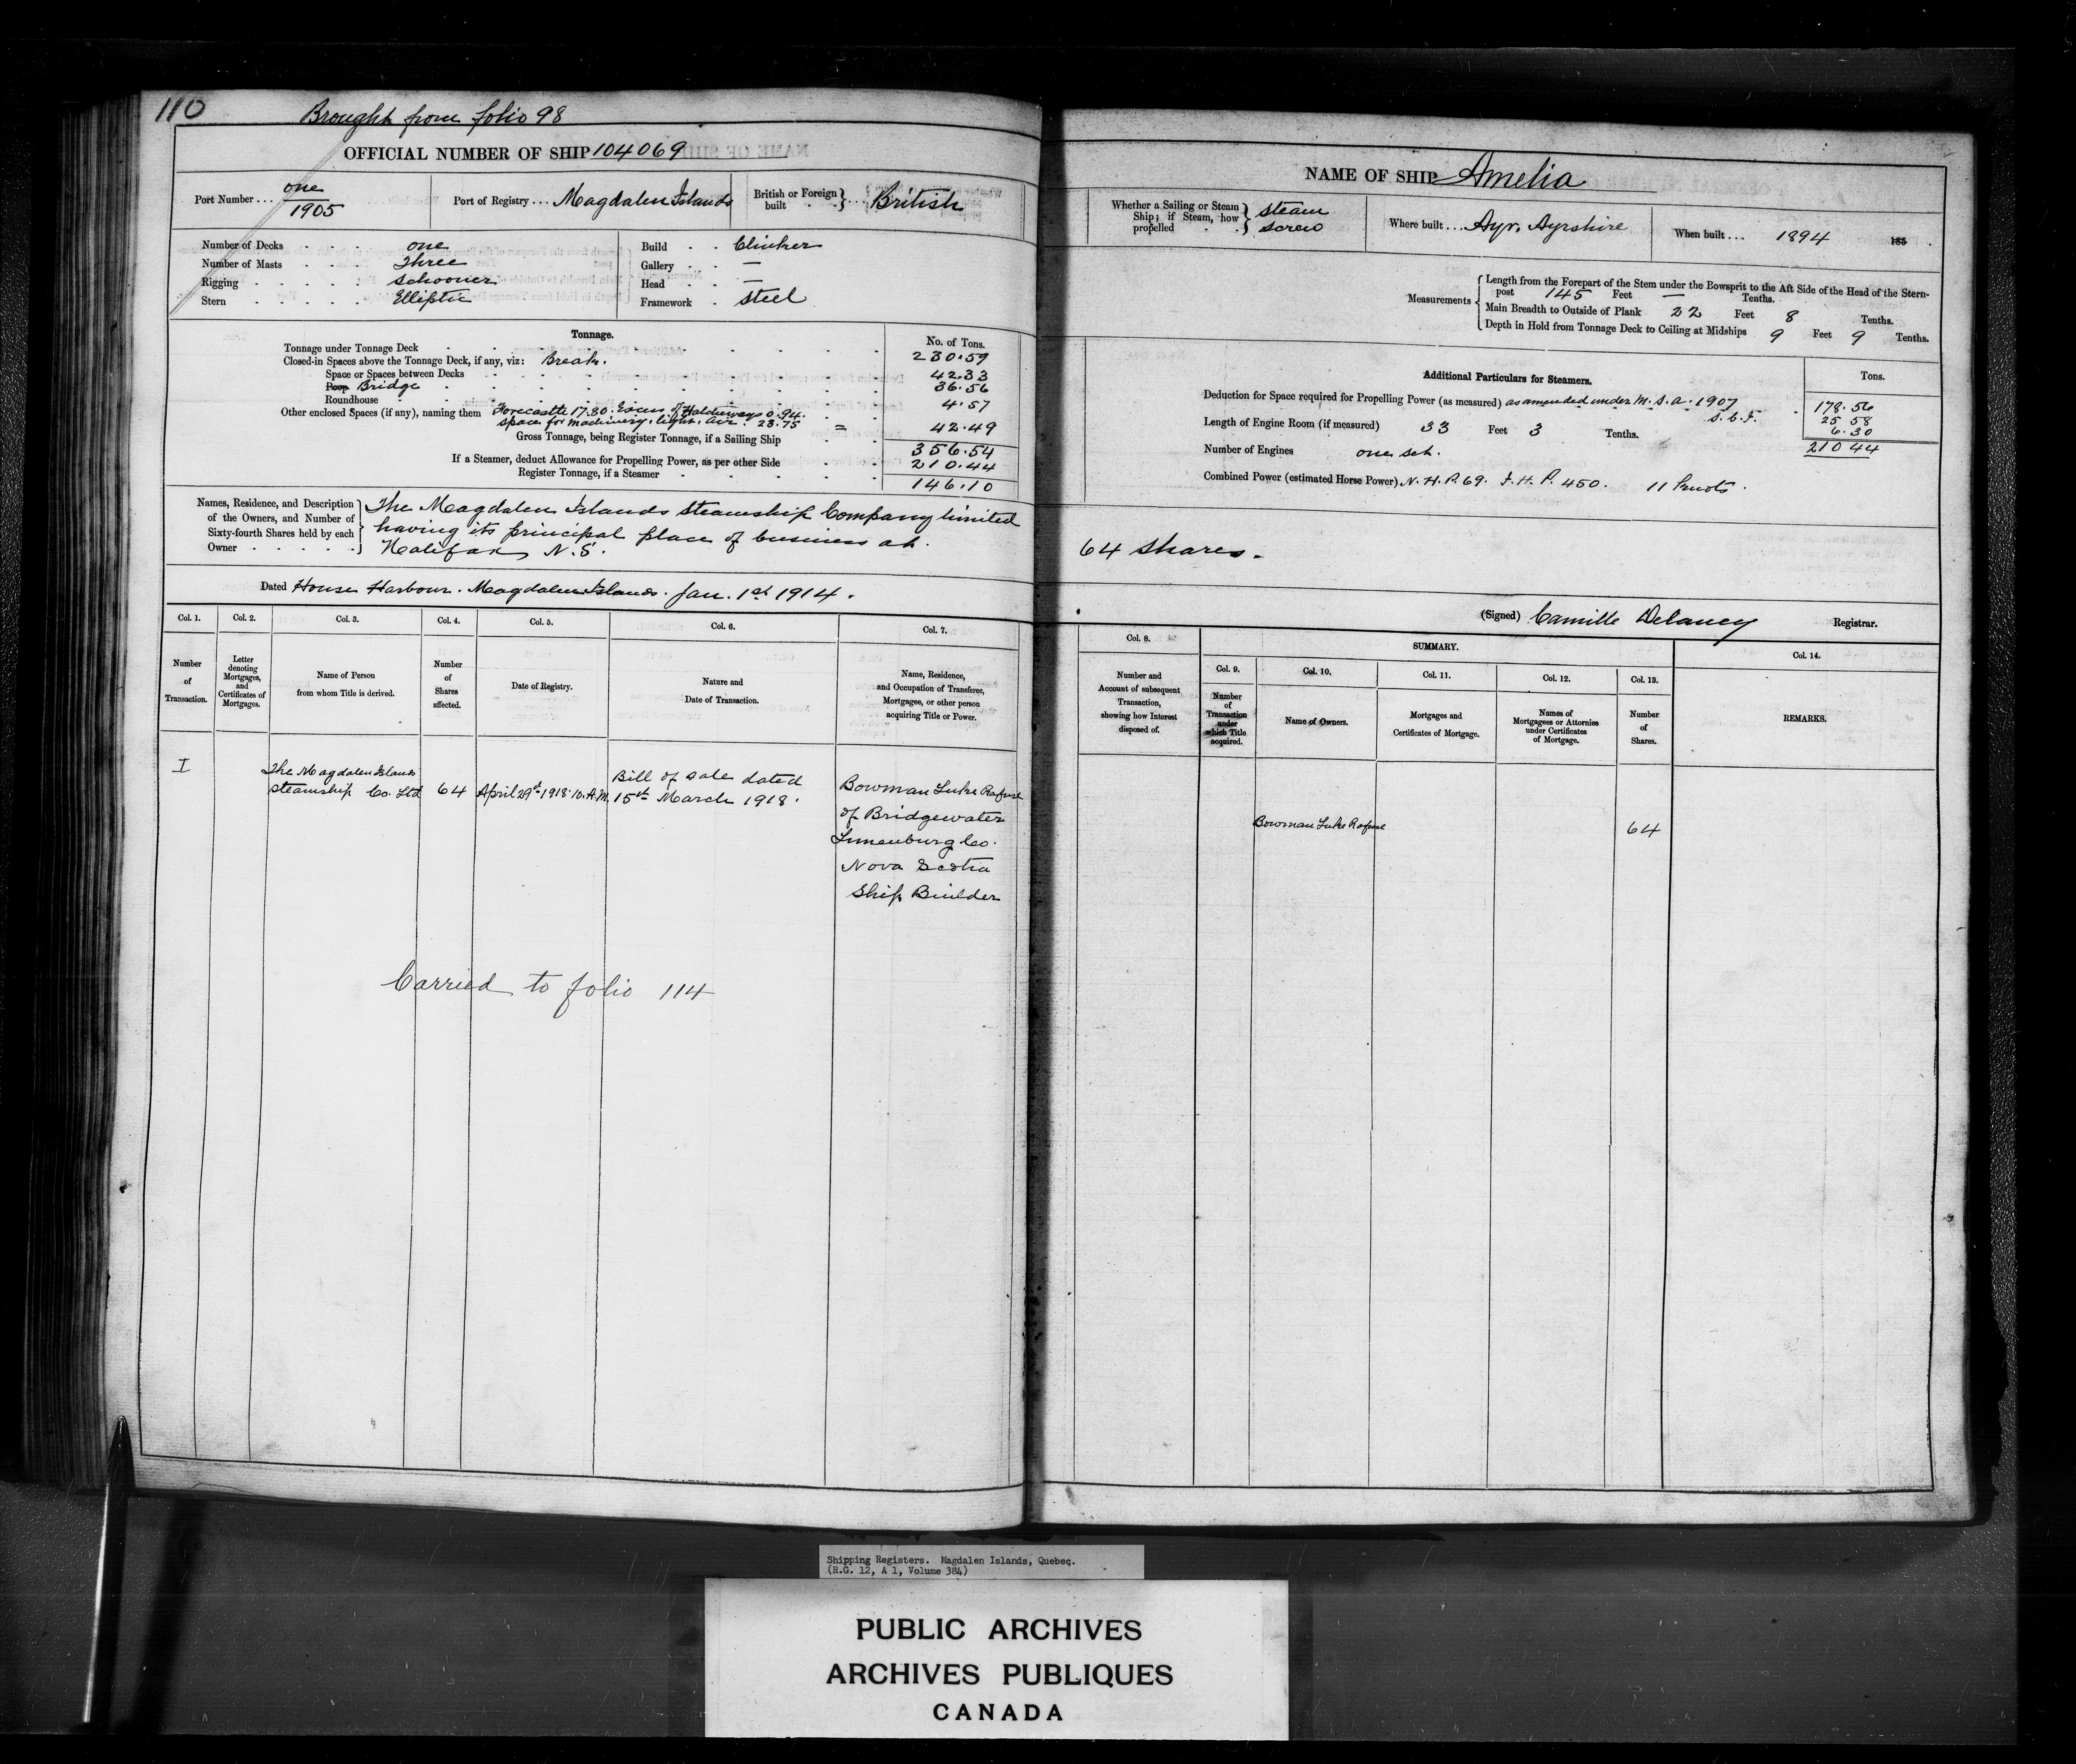 110
Brought from folio 98
OFFICIAL NUMBER OF SHIP 104069
Port Number . . . one
1905
Port of Registry . . . Magdalen Islands
British or Foreign
built . . } . . . British
Number of Decks . . . one
Number of Masts . . . Three
Rigging . . . . . Schooner
Stern . . . . . Elliptic
Build . . Clinker
Gallery . . —
Head . . —
Framework . Steel
Tonnage.
No. of Tons.
Tonnage under Tonnage Deck 230.59
Closed-in Spaces above the Tonnage Deck, if any, viz: Break.
Space or Spaces between Decks 42.33
Poop Bridge 36.56
Roundhouse 4.57
Other enclosed Spaces (if any), naming them Forecastle 17.80. Excess of Hatchways 0.94.
space for machinery, light, air. 23.75 = 42.49
Gross Tonnage, being Register Tonnage, if a Sailing Ship 356.54
If a Steamer, deduct Allowance for Propelling Power, as per other Side 210.44
Register Tonnage, if a Steamer 146.10
Names, Residence, and Description
of the Owners, and Number of
Sixty-fourth Shares held by each
Owner . . . . .
The Magdalen Islands Steamship Company limited
having its principal place of business at
Halifax, N.S.
Dated House Harbour. Magdalen Islands. Jan. 1st 1914.
Col. 1. Col. 2. Col. 3. Col. 4. Col. 5. Col. 6. Col. 7.
Number
of
Transaction.
Letter
denoting
Mortgages,
and
Certificates of
Mortgages.
Name of Person
from whom Title is derived.
Number
of
Shares
affected.
Date of Registry.
Nature and
Date of Transaction.
Name, Residence,
and Occupation of Transferee,
Mortgagee, or other person
acquiring Title or Power.
I
The Magdalen Islands
Steamship Co. Ltd
64
April 29th 1918. 10. A.M.
Bill of Sale dated
15th March 1918.
Bowman Luke Rafuse
of Bridgewater
Lunenburg Co.
Nova Scotia
Ship Builder
Carried to folio 114
NAME OF SHIP Amelia
Whether a Sailing or Steam
Ship; if Steam, how
propelled . . } Steam
Screw
Where built . . . Ayr, Ayrshire
When built . . . 1894 185 .
Measurements
Length from the Forepart of the Stem under the Bowsprit to the Aft Side of the Head of the Stern-
post 145 Feet — Tenths.
Main Breadth to Outside of Plank 22 Feet 8 Tenths.
Depth in Hold from Tonnage Deck to Ceiling at Midships 9 Feet 9 Tenths.
Additional Particulars for Steamers.
Tons.
Deduction for Space required for Propelling Power (as measured) as amended under M.S.A. 1907 178.56
25 58
Length of Engine Room (if measured) 33 Feet 3 Tenths. 6.30
Number of Engines one set. 210 44
Combined Power (estimated Horse Power) N.H.P. 69. I.H.P. 450. 11 Knots.
64 Shares.
(Signed) Camille Delaney Registrar.
Col. 8.
SUMMARY.
Col. 9. Col. 10. Col. 11. Col. 12. Col. 13. Col. 14.
Number and
Account of subsequent
Transaction,
showing how Interest
disposed of.
Number
of
Transaction
under
which Title
acquired.
Name of Owners.
Mortgages and
Certificates of Mortgage.
Names of
Mortgagees or Attornies
under Certificates
of Mortgage.
Number
of
Shares.
REMARKS.
Bowman Luke Rafuse
64
Shipping Registers. Magdalen Islands, Quebec.
(R.G. 12, A 1, Volume 384)
PUBLIC ARCHIVES
ARCHIVES PUBLIQUES
CANADA